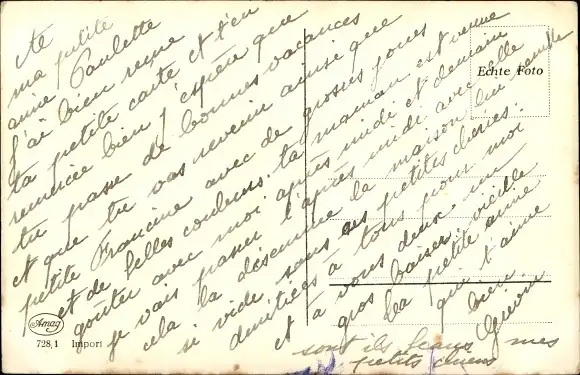 ma petite
amie Paulette
J'ai bien reçue
ta petite carte et t'en
remercie bien j'espère que
tu passe de bonnes vacances
et que tu vas revenir ainsi que
petite Francine avec de grosses joues
et de belles couleurs. ta maman est venue
goûter avec moi après midi et demain
je vais passer l'après midi avec elle
cela la désennuie la maison lui semble
si vide sans ses petites chéries.
à tous pour moi
et à vous deux un
gros baiser. vieille
La petite amie
qui t'aime
bien.
sont ils beaux mes
petits chiens
Echte Foto
Amag
728,1 Import